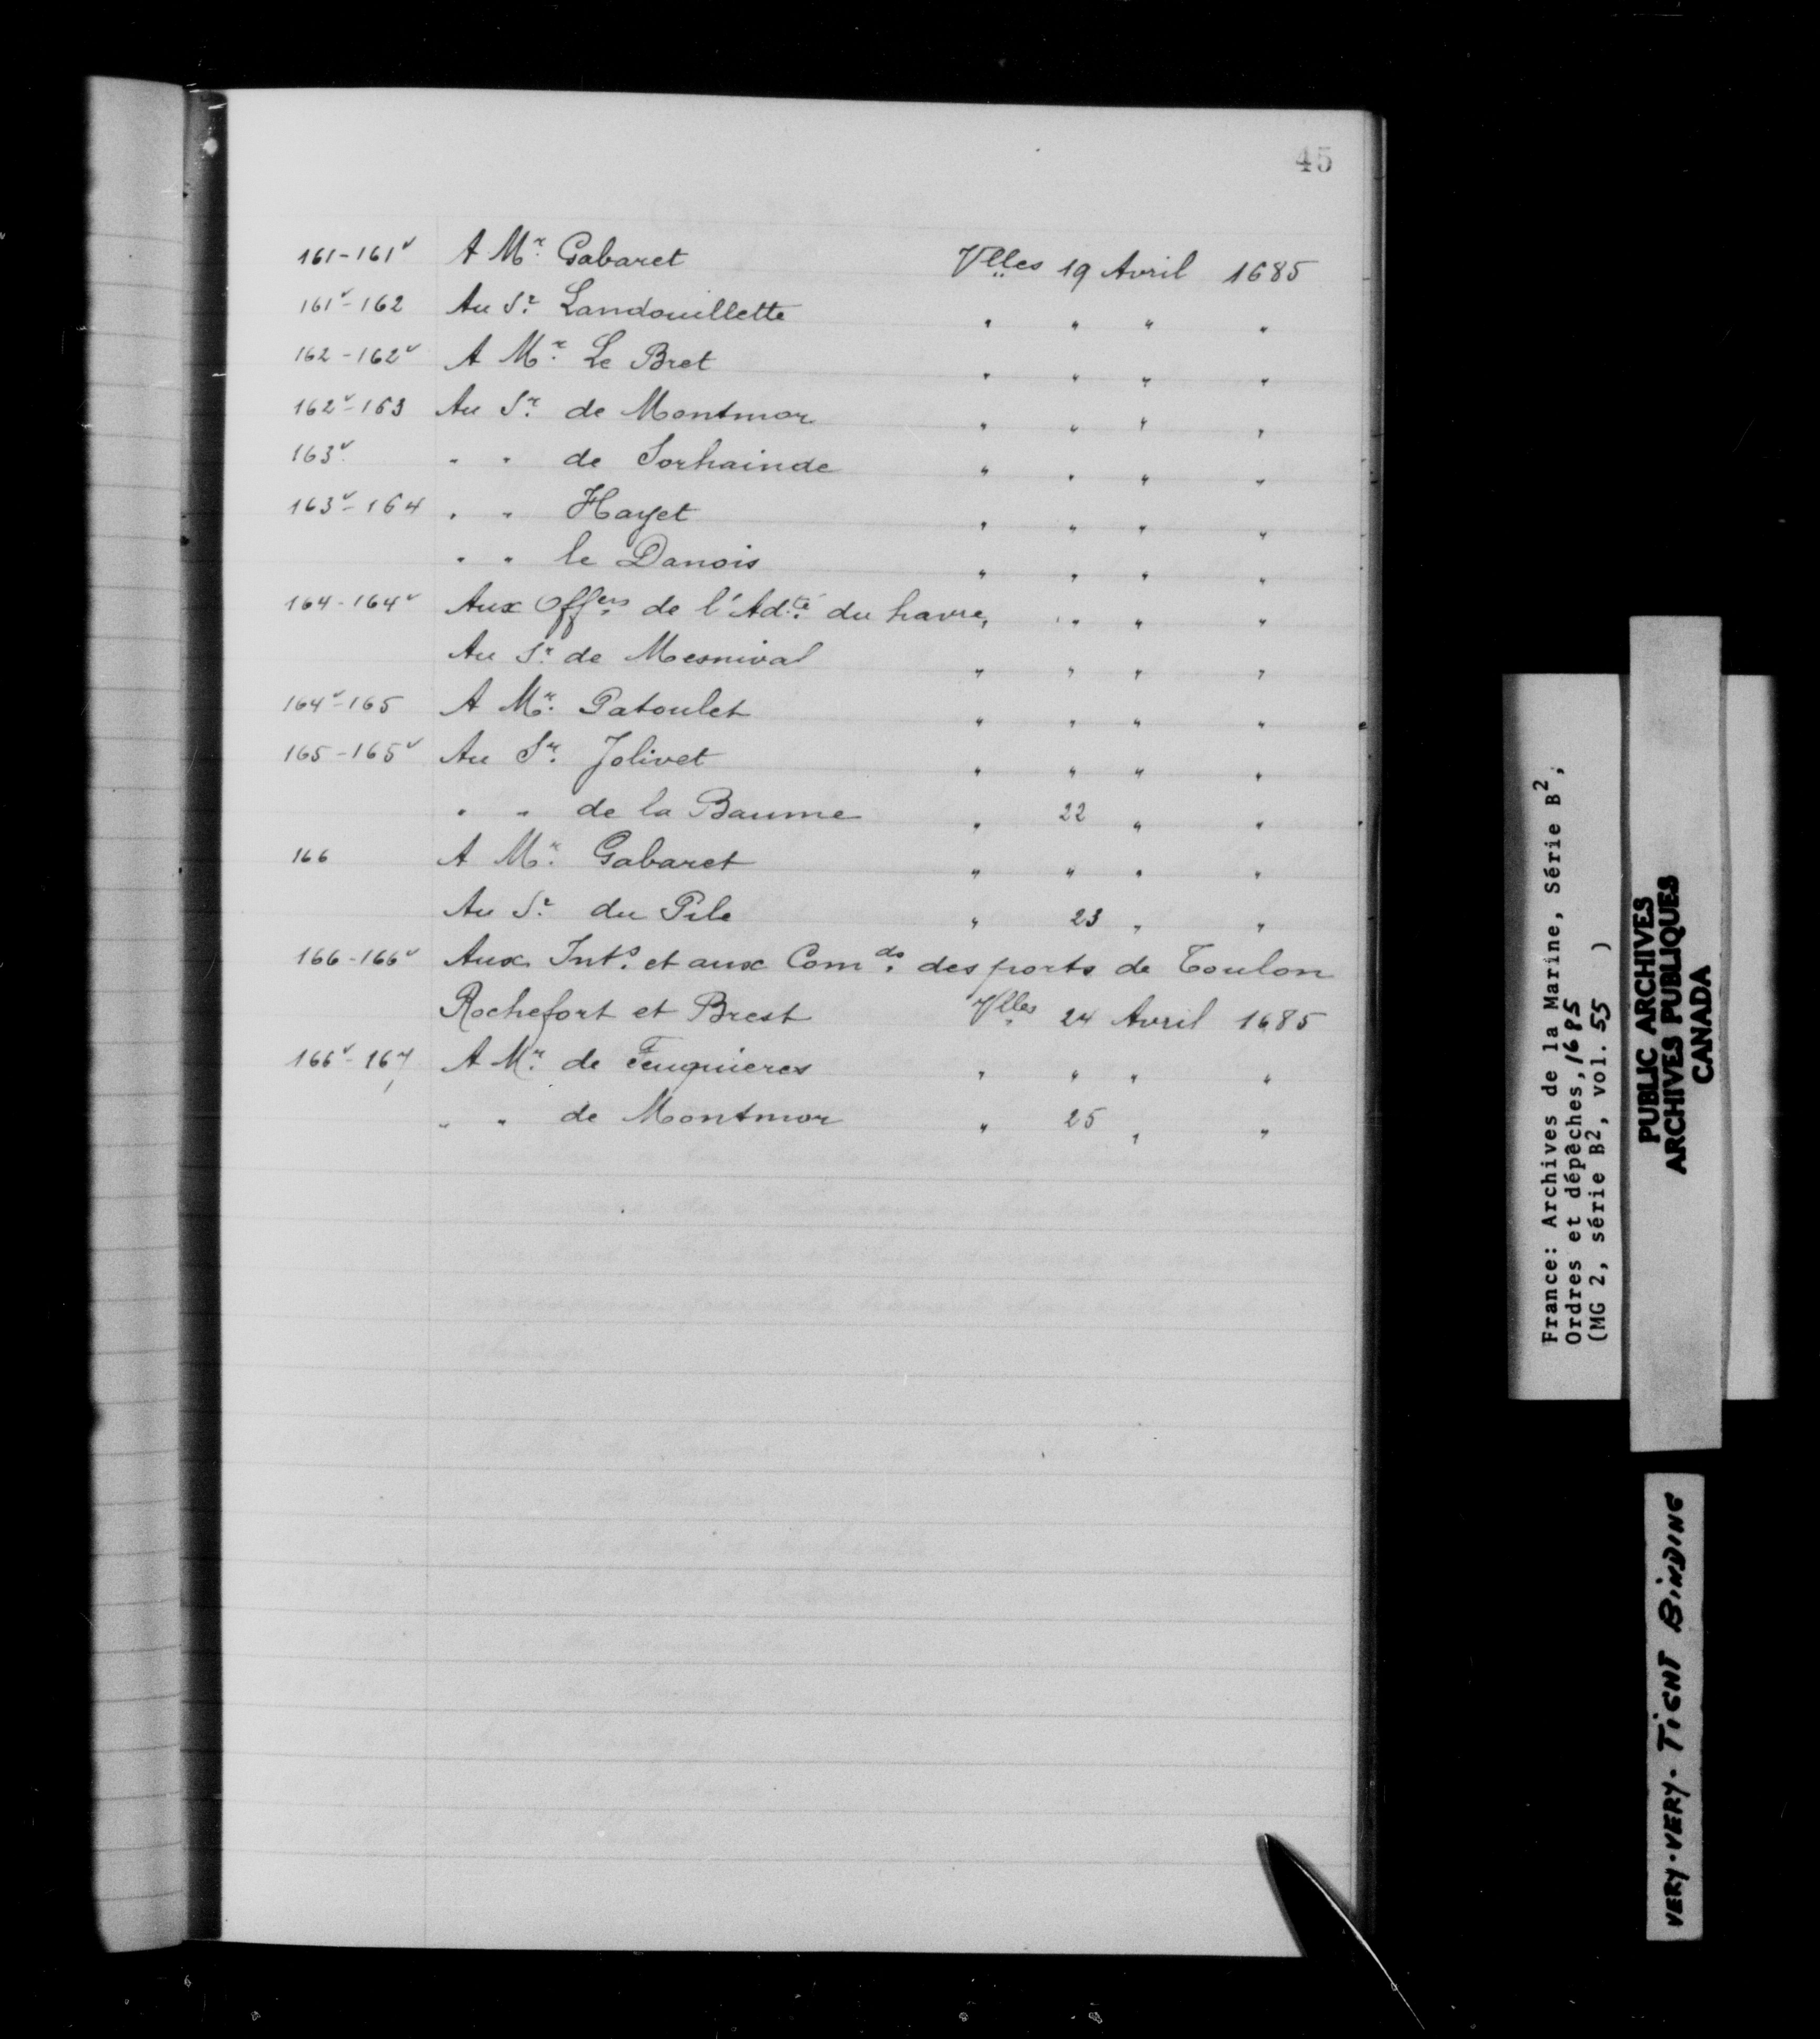 45
161-161v A Mr. Gabaret Vlles 19 Avril 1685
161v-162 Au Sr. Landouillette " " " "
162-162v A Mr. Le Bret " " " "
162v-163 Au Sr. de Montmor " " " "
163v. " " de Sorhainde " " " "
163v-164 " " Hayet " " " "
" " le Danois " " " "
164-164v Aux Offers de l'Adté. du havre " " " "
Au Sr. de Mesnival " " " "
164v-165 A Mr. Patoulet " " " "
165-165v Au Sr. Jolivet " " " "
" " de la Baume " 22 " "
166 A Mr. Gabaret " " " "
Au Sr. du Pile " 23 " "
166-166v Aux Ints. et aux Comds. des ports de Toulon
Rochefort et Brest Vlles 24 Avril 1685
166v-167 A Mr. de Feuquieres " " " "
" " de Montmor " 25 " "
France: Archives de la Marine, Série B2,
Ordres et dépêches, 1685
(MG 2, série B2, vol. 55 )
PUBLIC ARCHIVES
ARCHIVES PUBLIQUES
CANADA
VERY-VERY-TIGHT BINDING